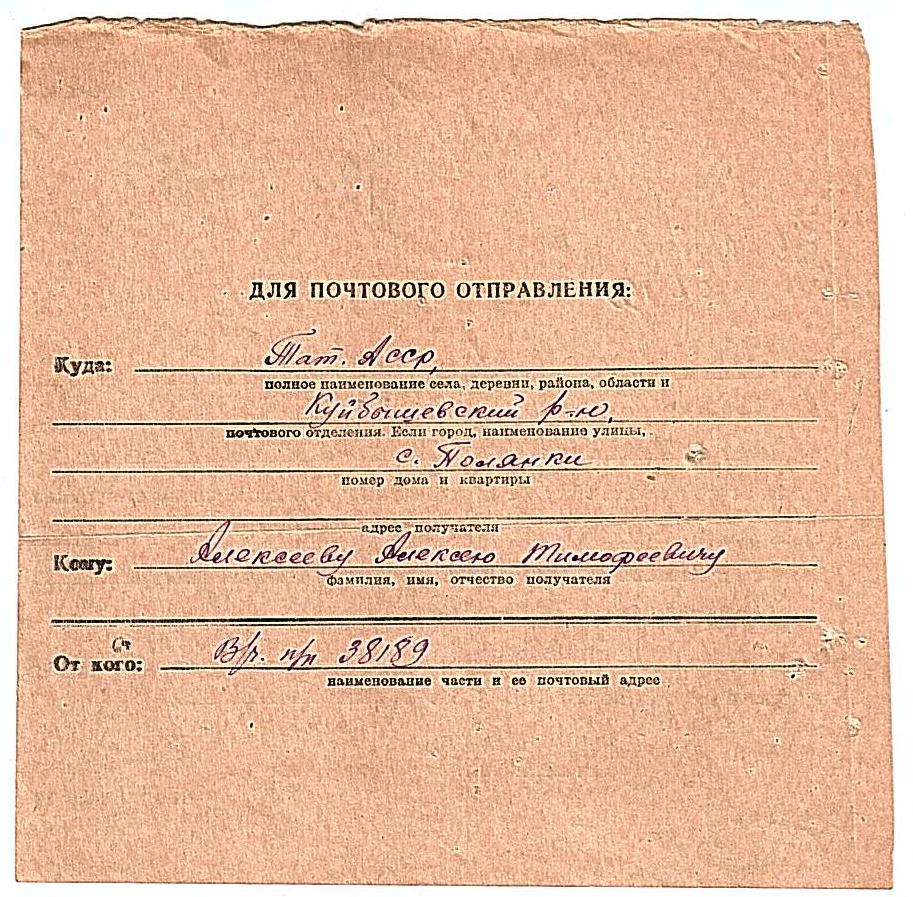 ДЛЯ ПОЧТОВОГО ОТПРАВЛЕНИЯ:
Куда: Тат. Асср,
полное наименование села, деревни, района, области и
Куйбышевский р-н,
почтового отделения. Если город, наименование улицы,
с. Полянки
номер дома и квартиры
адрес получателя
Кому: Алексееву Алексею Тимофеевичу
фамилия, имя, отчество получателя
От кого: В/ч. п/п 38189
наименование части и ее почтовый адрес